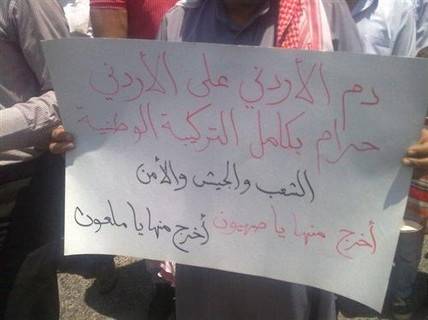 دم الأردني على الأردني
حرام بكامل التركيبة الوطنية
الشعب والجيش والأمن
أخرج منها يا صهيون أخرج منها يا ملعون